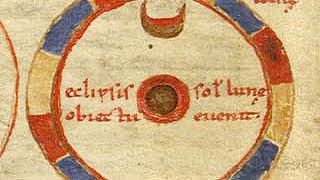 eclipsis sol' lune
obiectu evenit.